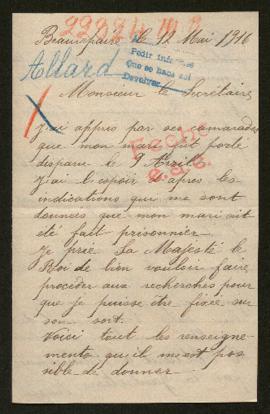 22284 M 2
Beaurepaire le 12 Mai 1916
Allard
Pedir informes
Que se hace así
Devolver
Monsieur le Secrétaire
J'ai appris par ses camarades
que mon mari fut porté
disparu le 9 Avril
J'ai l'espoir d'après les
indications qui me sont
données que mon mari ait
été fait prisonnier.
Je prie Sa Majesté le
Roi de bien vouloir faire
procéder aux recherches pour
que je puisse être fixée sur
son sort.
Voici tout les renseigne-
ments qu'il m'est pos
sible de donner